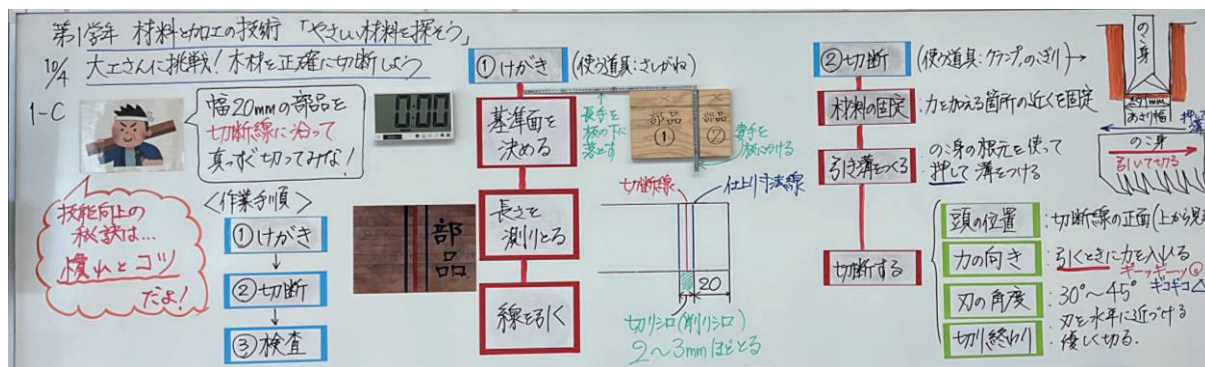 第1学年 材料と加工の技術 「やさしい材料を探そう」
10/4 大工さんに挑戦!木材を正確に切断しよう
1-C
幅20mmの部品を
切断線に沿って
真っすぐ切ってみな!
0:00
技能向上の
秘訣は…
慣れとコツ
だよ!
<作業手順>
①けがき
②切断
③検査
部品
①けがき (使う道具:さしがね)
基準面を
決める
長手を
板の下に
落とす
部品
①
部品
②
妻手を
板にかける
長さを
測りとる
線を引く
切断線
仕上り寸法線
20
切りシロ(削りシロ)
2~3mmほどとる
②切断 (使う道具:クランプ,のこぎり)→
材料の固定:力を加える箇所の近くを固定
引き溝をつくる:のこ身の根元を使って
押して溝をつける
切断する
頭の位置:切断線の正面(上から見
力の向き:引くときに力を入れる
ギーッギーッ◎
ギコギコ△
刃の角度:30°~45°
切り終わり:刃を水平に近づける
優しく切る.
のこ身
約1mm
あさり幅
押して
溝
のこ身
引いて切る